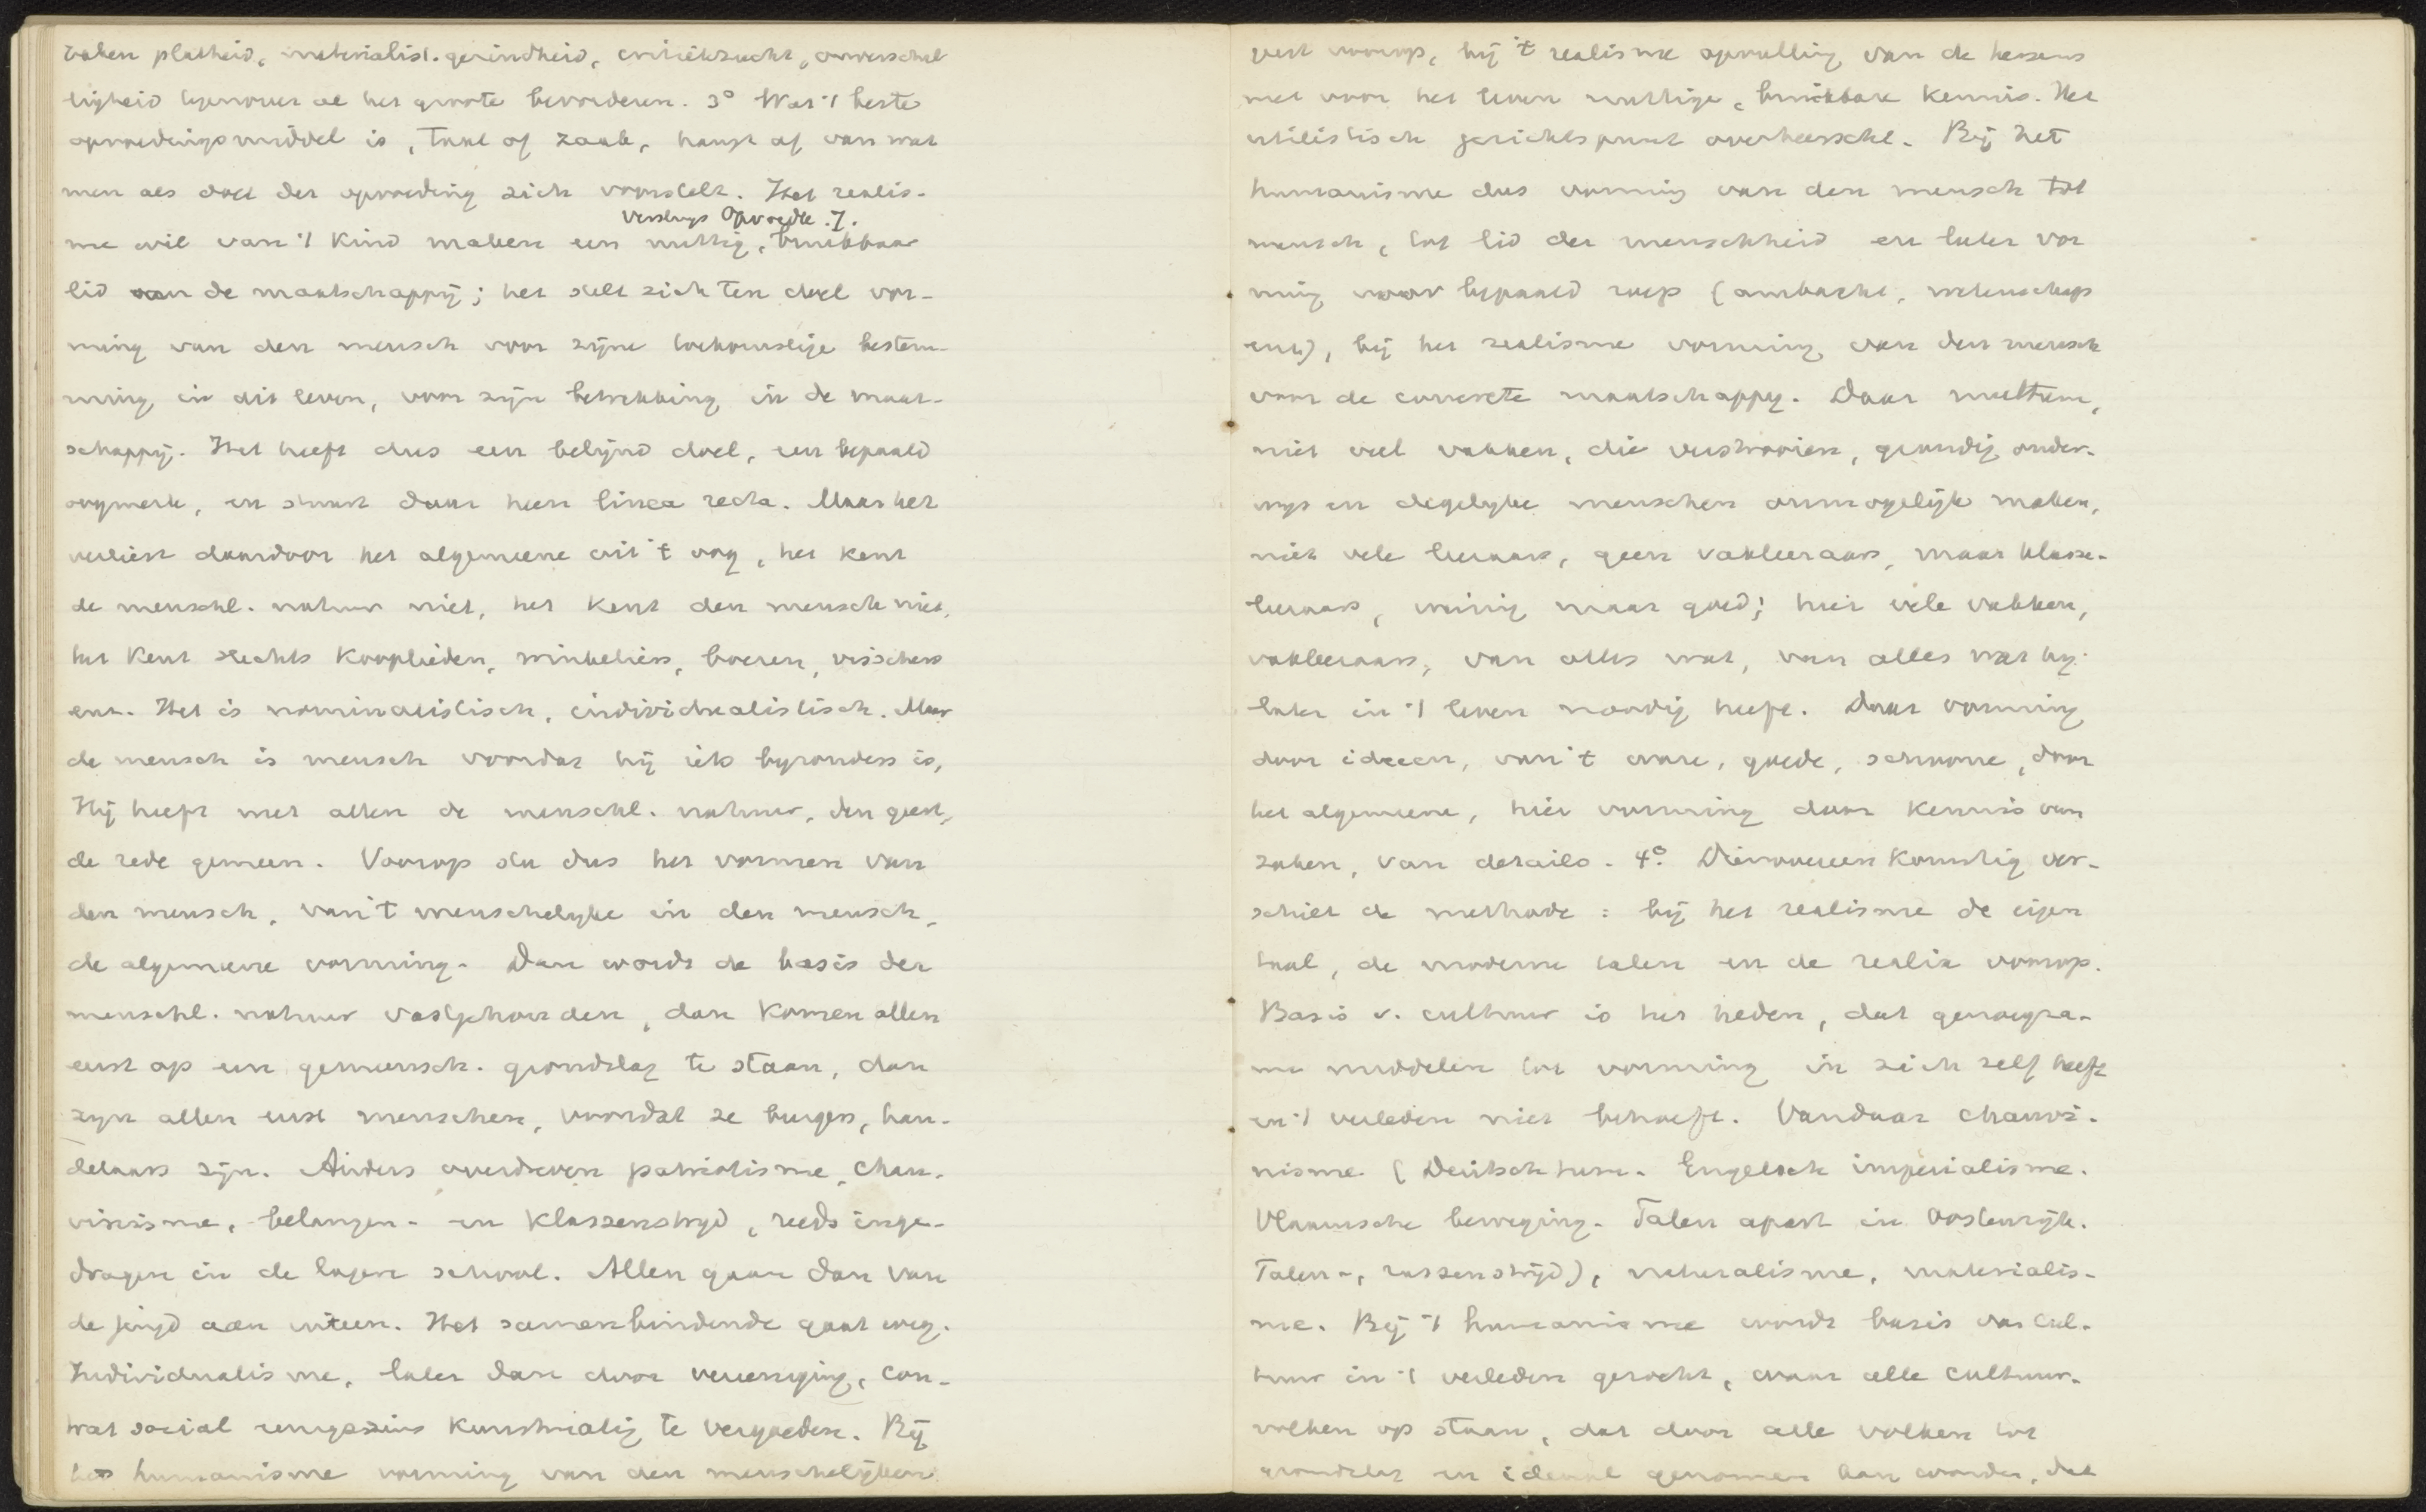 zaken platheid, materialist. gezindheid, critiekzucht, onverschil
ligheid tegenover al het groote bevorderen. 3° Wat 't beste
opvoedingsmiddel is, taal of zaak, hangt af van wat
men als doel der opvoeding zich voorstelt. Het realis-
Verslags Opvoedk. I.
me wil van 't kind maken een nuttig, bruikbaar
lid van de maatschappij; het stelt zich ten doel vor-
ming van den mensch voor zijne toekomstige bestem-
ming in dit leven, voor zijn betrekking in de maat-
schappij. Het heeft dus een belijnd doel, een bepaald
oogmerk, en stuurt daar heen linea recta. Maar het
verliest daardoor het algemeene uit 't oog, het kent
de menschl. natuur niet, het kent den mensch niet,
het kent slechts kooplieden, winkeliers, boeren, visschers
enz. Het is nominalistisch, individualistisch. Maar
de mensch is mensch voordat hij iets byzonders is,
Hij heeft met allen de menschl. natuur, den geest,
de rede gemeen. Voorop sta dus het vormen van
den mensch, van 't menschelyke in den mensch,
de algemeene vorming. Dan wordt de basis der
menschl. natuur vastgehouden, dan komen allen
eerst op een gemeensch. grondslag te staan, dan
zyn allen eerst menschen, voordat ze burgers, han-
delaars zijn. Anders overdreven patriotisme, chau-
vinisme, belangen- en klassenstryd, reeds inge-
dragen in de lagere school. Allen gaan dan van
de jeugd aan uiteen. Het samenbindende gaat weg.
Individualisme, later dan door vereeniging, con-
trat social eenigszins kunstmatig te vergoeden. Bij
het humanisme vorming van den menschelijken
geest voorop, bij 't realisme opvulling van de hersens
met voor het leven nuttige, bruikbare kennis. Het
utilistisch gezichtspunt overheerscht. Bij het
humanisme dus vorming van den mensch tot
mensch, tot lid der menschheid en later vor
ming voor bepaald roep (ambacht, wetenschap
enz), bij het realisme vorming van den mensch
voor de concrete maatschappy. Daar multum,
niet veel vakken, die verstrooien, grondig onder-
wys en degelyke menschen onmogelijk maken,
niet vele leeraars, geen vakleeraars, maar klasse-
leeraars, weinig maar goed; hier vele vakken,
vakleeraars, van alles wat, van alles wat hy
later in 't leven noodig heeft. Daar vorming
door ideeen, van 't ware, goede, schoone, door
het algemeene, hier vorming door kennis van
zaken, van details. 4°. Dienovereenkomstig ver-
schilt de methode: bij het realisme de eigen
taal, de moderne talen en de realia voorop.
Basis v. cultuur is het heden, dat genoegza-
me middelen tot vorming in zich zelf heeft
en 't verleden niet behoeft. Vandaar chauvi-
nisme (Deutschtum. Engelsch imperialisme.
Vlaamsche beweging. Talen apart in Oostenrijk.
Talen-, rassenstrijd), naturalisme, materialis-
me. Bij 't humanisme wordt basis van cul-
tuur in 't verleden gezocht, waar alle cultuur-
volken op staan, dat door alle volken tot
grondslag en ideaal genomen kan worden, dat